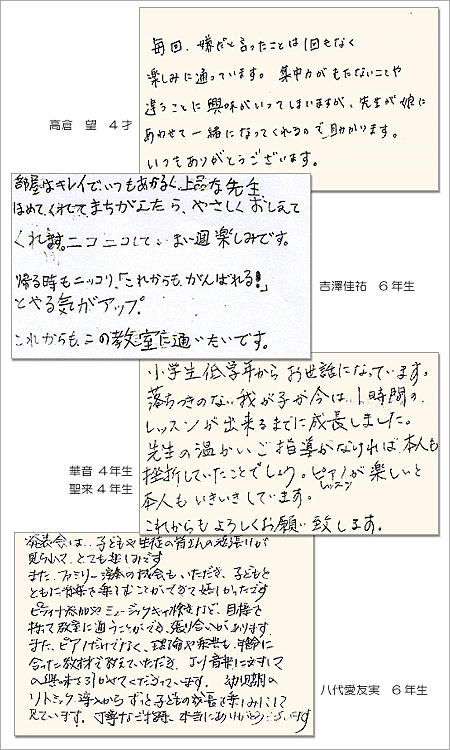 毎回、嫌だと言ったことは1回もなく
楽しみに通っています。集中力がもたないことや
違うことに興味がいってしまいますが、先生が娘に
あわせて一緒になってくれるので助かります。
いつもありがとうございます。
高倉 望 4才
部屋はキレイでいつもあかるく、上品な先生
ほめてくれてまちがえたら、やさしくおしえて
くれます。ニコニコしていて、まい週楽しみです。
帰る時もニッコリ、「これからも、がんばれる!」
とやる気がアップ。
これからも、この教室に通いたいです。
吉澤佳祐 6年生
小学生低学年からお世話になっています。
落ちつきのない我が子が今は、1時間の
レッスンが出来るまでに成長しました。
先生の温かいご指導がなければ、本人も
挫折していたことでしょう。ピアノレッスンが楽しいと
本人もいきいきしています。
これからもよろしくお願い致します。
華音 4年生
聖来 4年生
発表会は、子どもや生徒の皆さんの頑張りが
見られて、とても楽しみです
また、ファミリー演奏の機会もいただき、子どもと
ともに音楽を楽しむことができて嬉しかったです
ピティナ参加やミュージックキャ検定など、目標を
持って教室に通うことができ、張り合いがあります
また、ピアノだけでなく、理論や楽典も、年齢に
合った教材で教えていただき、より音楽に対して
の興味を引き出してくださっています。幼児期の
リトミック導入からずっと子どもの成長を楽しみにして
見ています。丁寧なご指導、本当にありがとうございます
八代愛友実 6年生